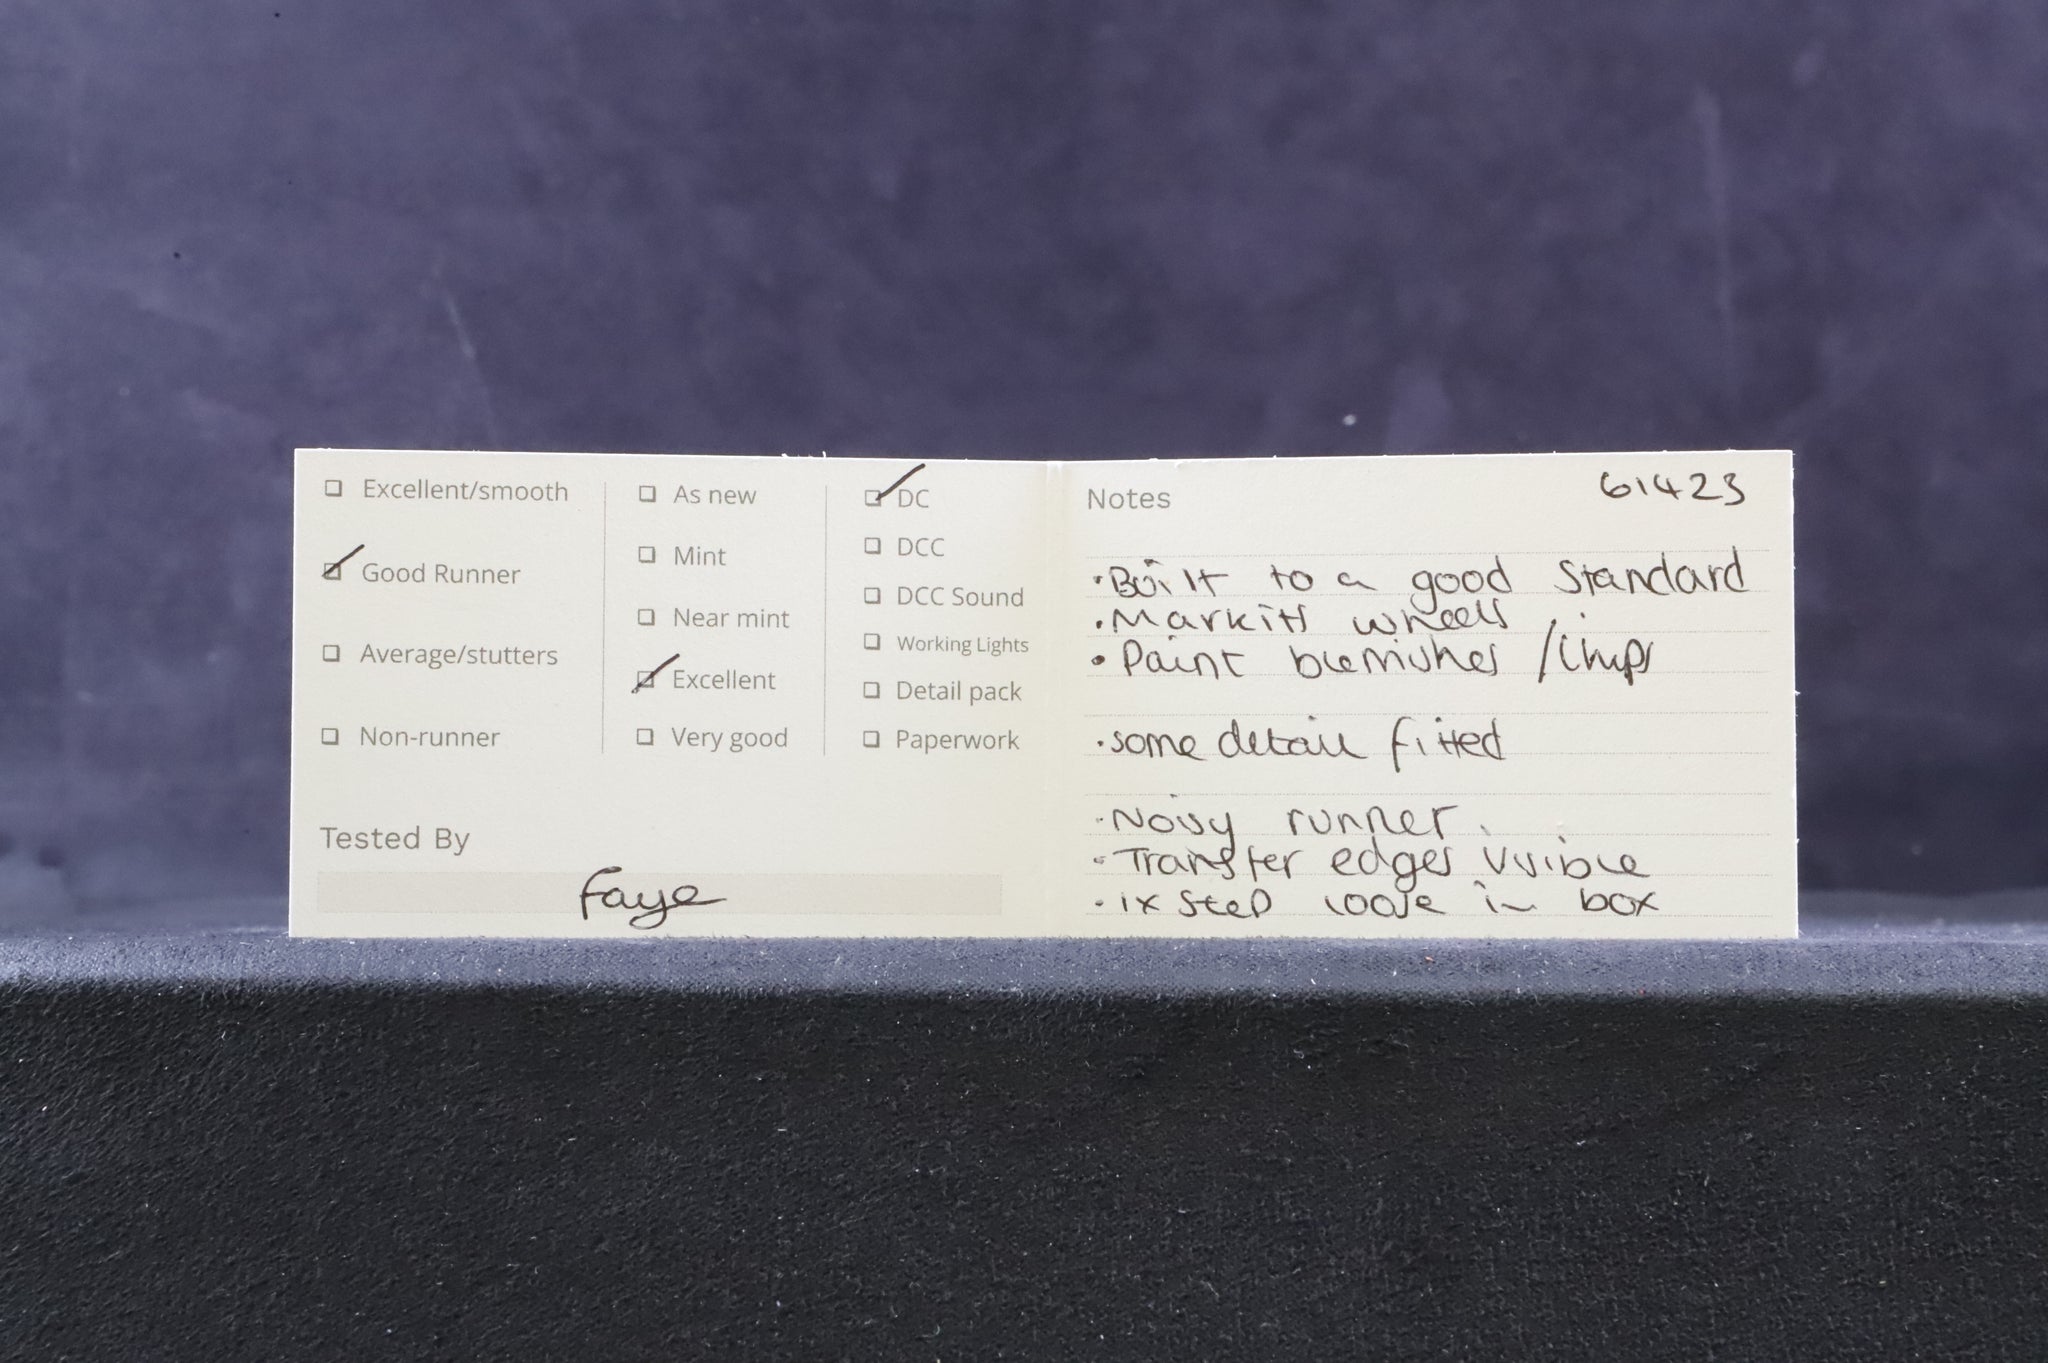 Excellent/smooth
Good Runner
Average/stutters
Non-runner
As new
Mint
Near mint
Excellent
Very good
DC
DCC
DCC Sound
Working Lights
Detail pack
Paperwork
Tested By
Faye
Notes 61423
·Built to a good standard
·Markits wheels
·Paint blemishes /chips
·some detail fitted
·Noisy runner.
·Transfer edges visible
·1x step loose in box